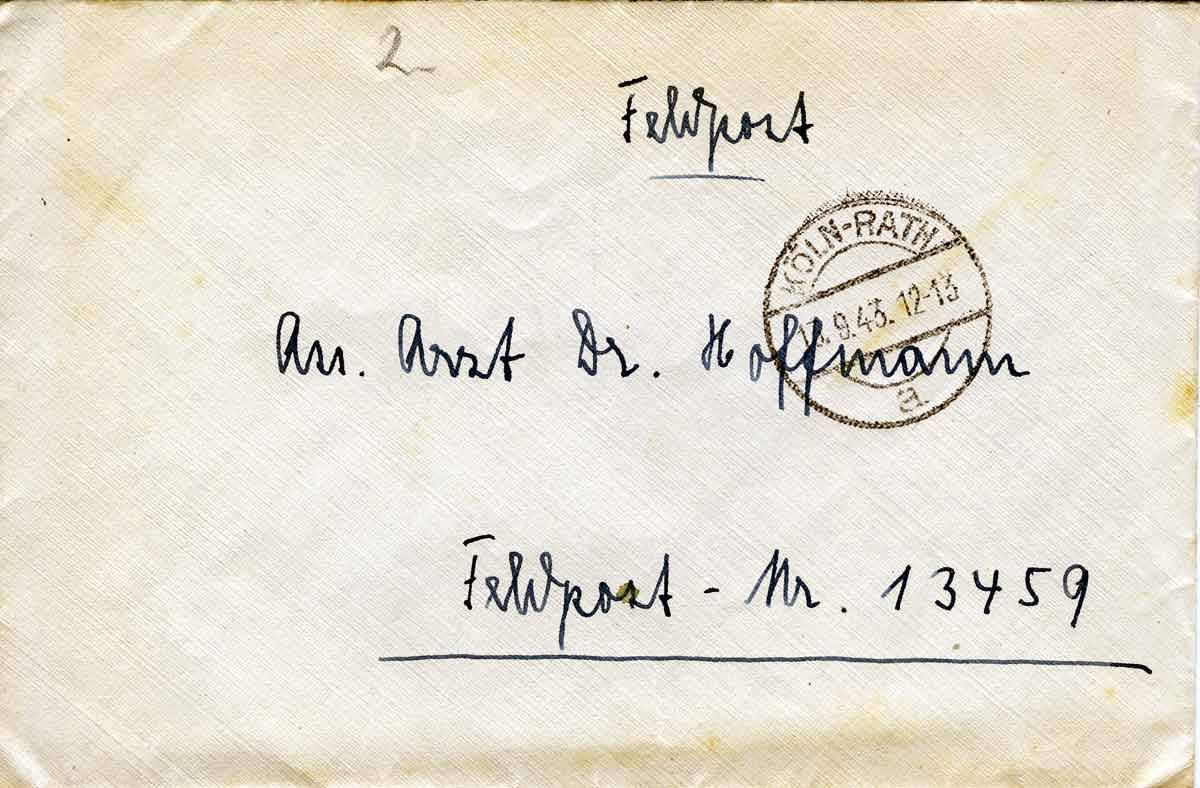 2
Feldpost
KÖLN-RATH
9.43.12-13
a
An. Arzt Dr. Hoffmann
Feldpost - Nr. 13459